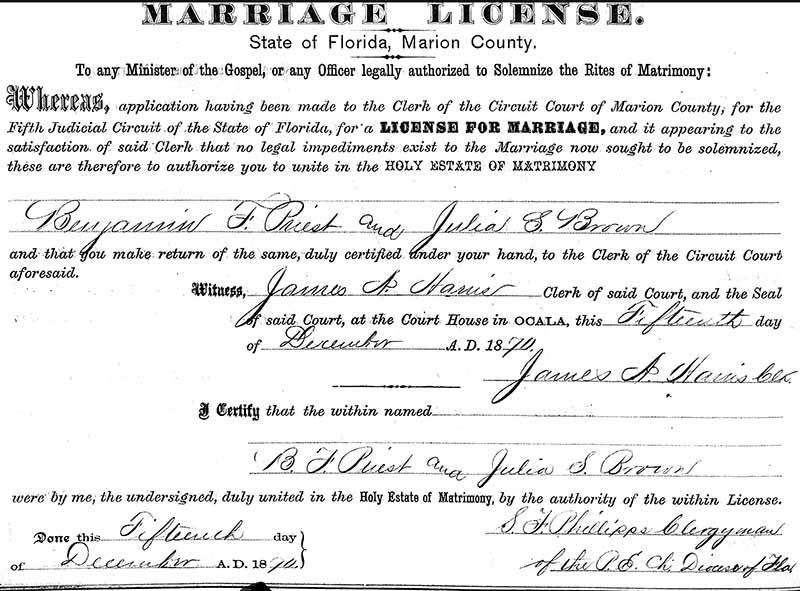 MARRIAGE LICENSE.
State of Florida, Marion County.
To any Minister of the Gospel, or any Officer legally authorized to Solemnize the Rites of Matrimony:
Whereas, application having been made to the Clerk of the Circuit Court of Marion County, for the
Fifth Judicial Circuit of the State of Florida, for a LICENSE FOR MARRIAGE, and it appearing to the
satisfaction of said Clerk that no legal impediments exist to the Marriage now sought to be solemnized,
these are therefore to authorize you to unite in the HOLY ESTATE OF MATRIMONY
Benjamin F. Priest and Julia S. Brown
and that you make return of the same, duly certified under your hand, to the Clerk of the Circuit Court
aforesaid.
Witness, James A. Harris Clerk of said Court, and the Seal
of said Court, at the Court House in OCALA, this Fifteenth day
of December A. D. 1870.
James A. Harris Clk.
I Certify that the within named
B. F. Priest and Julia S. Brown
were by me, the undersigned, duly united in the Holy Estate of Matrimony, by the authority of the within License.
Done this Fifteenth day
of December A. D. 1870.
S. F. Phillipps Clergyman
of the P. E. Ch. Diocese of Fla